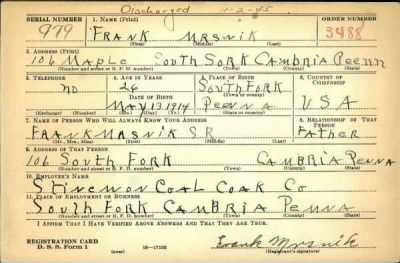 Discharged 11-2-45
SERIAL NUMBER 1. NAME (Print) ORDER NUMBER
979 FRANK MRSNIK 3488
(First) (Middle) (Last)
2. ADDRESS (Print)
106 MAPLE SOUTH SORK CAMBRIA PEENN
(Number and street or R. F. D. number) (Town) (County) (State)
3. TELEPHONE 4. AGE IN YEARS 5. PLACE OF BIRTH 6. COUNTRY OF CITIZENSHIP
NO 26 SOUTH FORK
DATE OF BIRTH (Town or county)
MAY 13 1914 PEENA USA
(Exchange) (Number) (Mo.) (Day) (Yr.) (State or country)
7. NAME OF PERSON WHO WILL ALWAYS KNOW YOUR ADDRESS 8. RELATIONSHIP OF THAT PERSON
FRANK MRSNIK SR FATHER
(Mr., Mrs., Miss) (First) (Middle) (Last)
9. ADDRESS OF THAT PERSON
106 SOUTH FORK CAMBRIA PENNA
(Number and street or R. F. D. number) (Town) (County) (State)
10. EMPLOYER'S NAME
STINEMON COAL COAK CO
11. PLACE OF EMPLOYMENT OR BUSINESS
SOUTH FORK CAMBRIA PENNA
(Number and street or R. F. D. number) (Town) (County) (State)
I AFFIRM THAT I HAVE VERIFIED ABOVE ANSWERS AND THAT THEY ARE TRUE.
REGISTRATION CARD
D. S. S. Form 1 (over) 16—17105 Frank Mrsnik
(Registrant's signature)